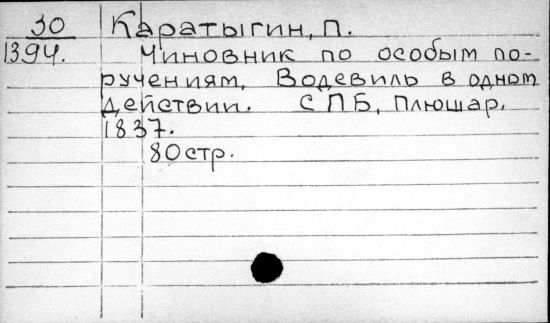 30 Каратыгин, П.
1394. Чиновник по особым по-
ручениям, Водевиль в одном
действии. СПБ, Плюшар,
1837.
80 стр.